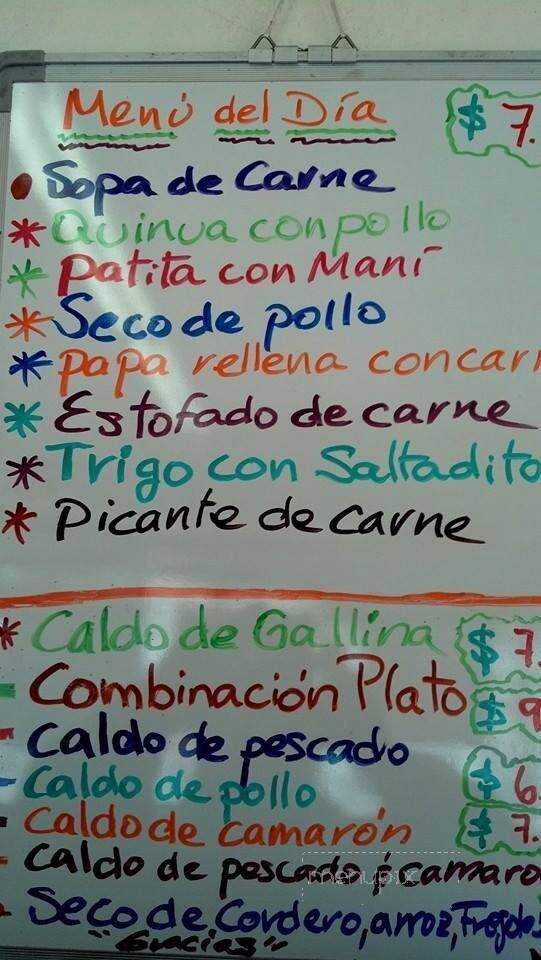 Menú del Día $ 7.
Sopa de Carne
* Quinua con pollo
* Patita con Maní
* Seco de pollo
* papa rellena con carn
* Estofado de carne
* Trigo con Saltadito
* Picante de carne
* Caldo de Gallina $ 7.
- Combinación Plato $ 9
- Caldo de pescado
- Caldo de pollo $ 6.
- Caldo de camarón $ 7.
- Caldo de pescado y camaro
- Seco de Cordero, arroz, Frejoles
"Gracias"
menupix